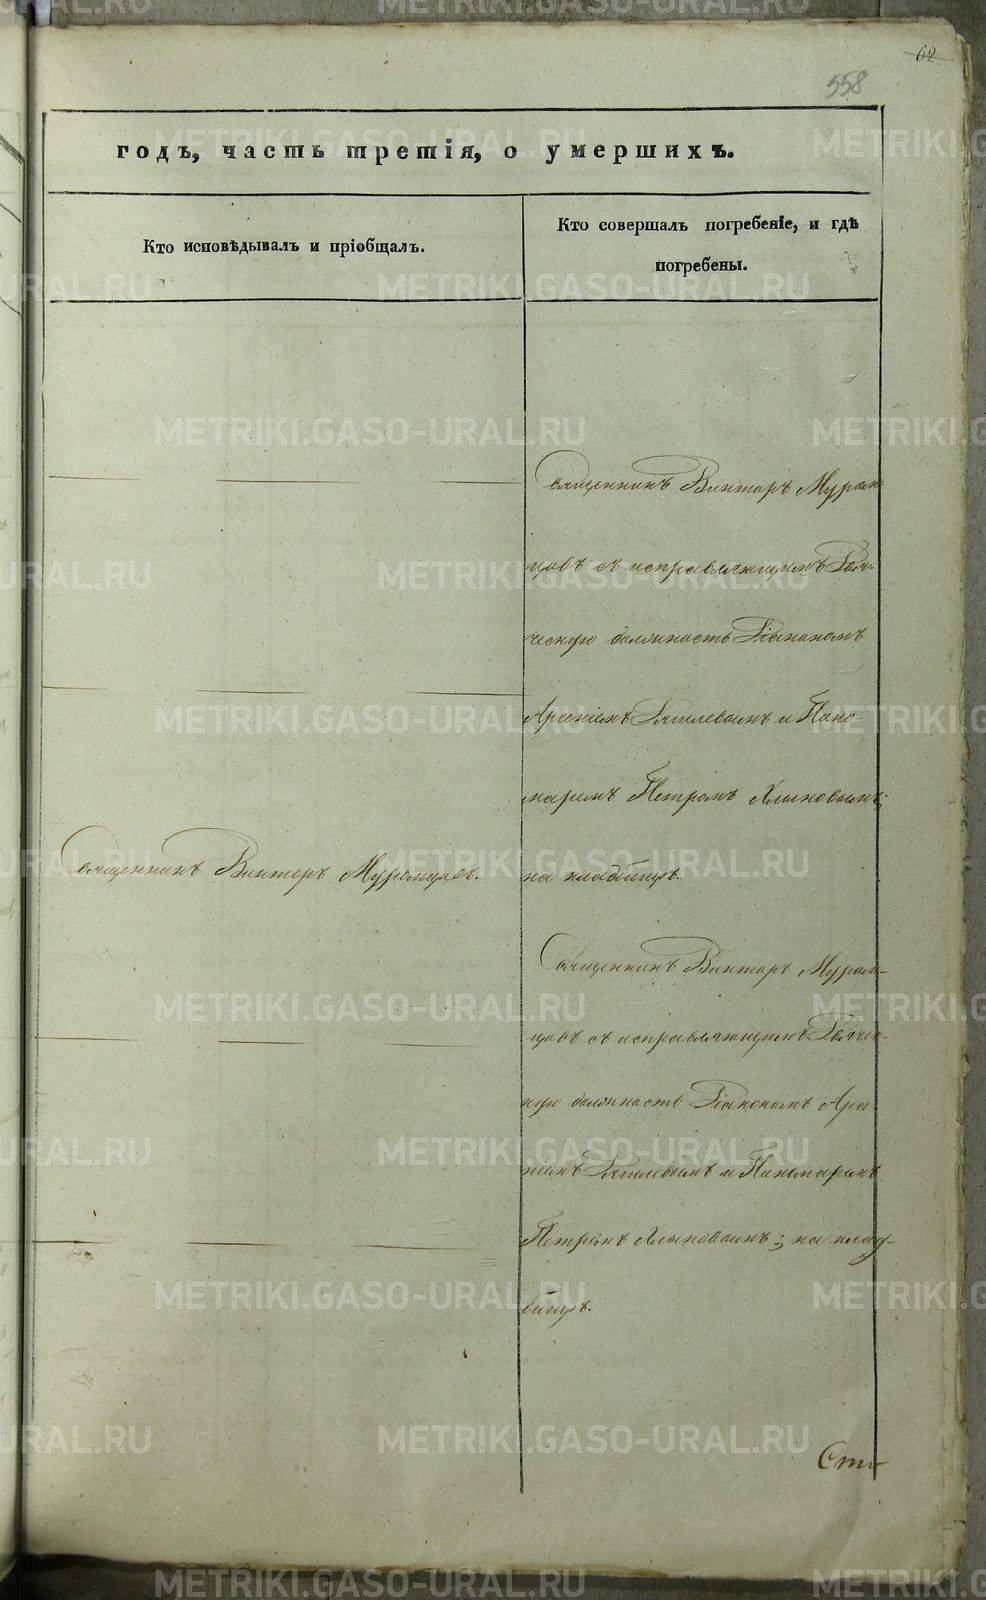 62
558
годъ, часть третія, о умершихъ.
Кто исповѣдывалъ и пріобщалъ.
Кто совершалъ погребеніе, и гдѣ
погребены.
Священникъ Викторъ Муром-
цовъ съ исправляющимъ Дьяч-
ческую должность Діакономъ
Арсеніемъ Дягилевымъ и Поно-
маремъ Петромъ Хлыновымъ;
Священникъ Викторъ Муромцовъ.
на кладбищѣ.
Священникъ Викторъ Муром-
цовъ съ исправляющимъ Дьячес-
кую должность Діакономъ Арсе-
ніемъ Дягилевымъ и Пономаремъ
Петромъ Хлыновымъ; на клад-
бищѣ.
METRIKI.GASO-URAL.RU